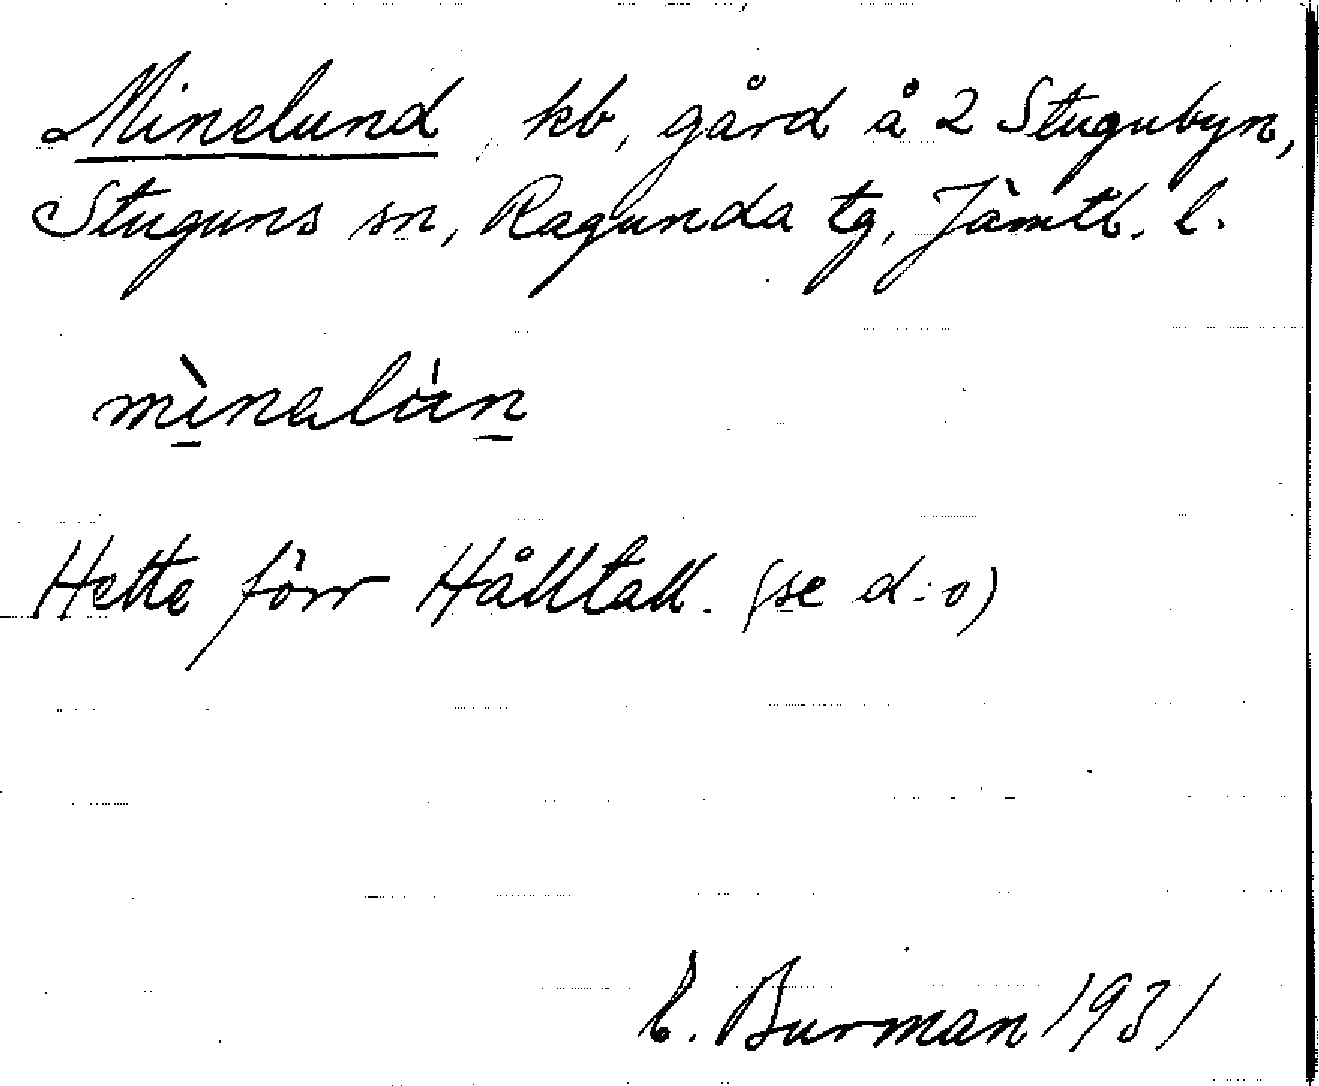 Minelund, kb, gård å 2 Stugubyn,
Stuguns sn, Ragunda tg, Jämtl. l.
mìnalùn
Hette förr Hålltall. (se d:o)
E. Burman 1931